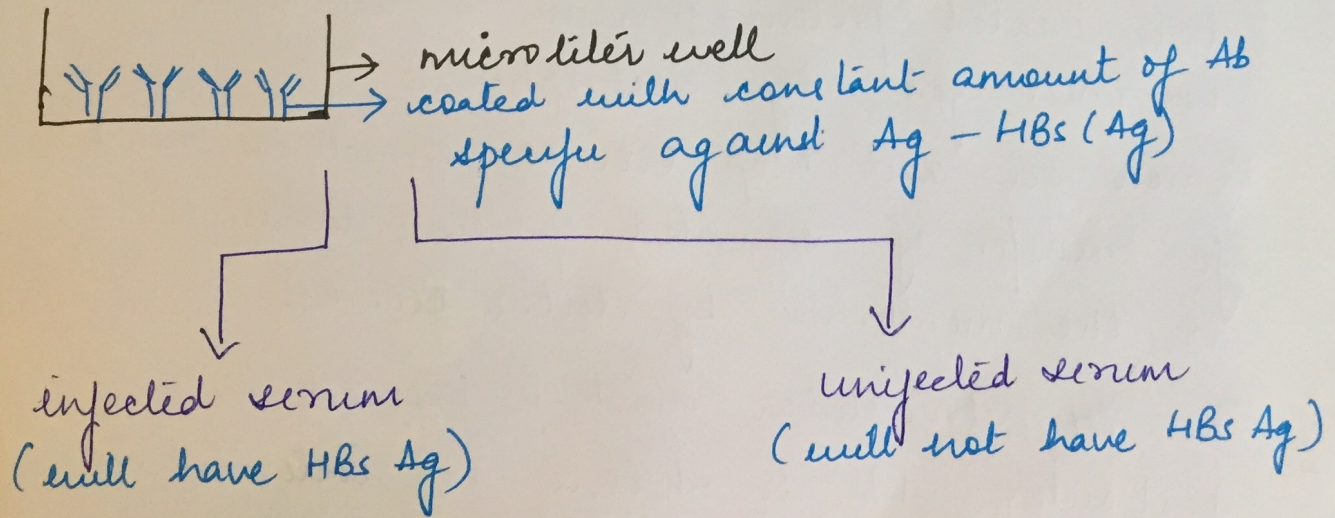 microtiter well
coated with constant amount of Ab
specific against Ag - HBs (Ag)
infected serum
(will have HBs Ag)
uninfected serum
(will not have HBs Ag)